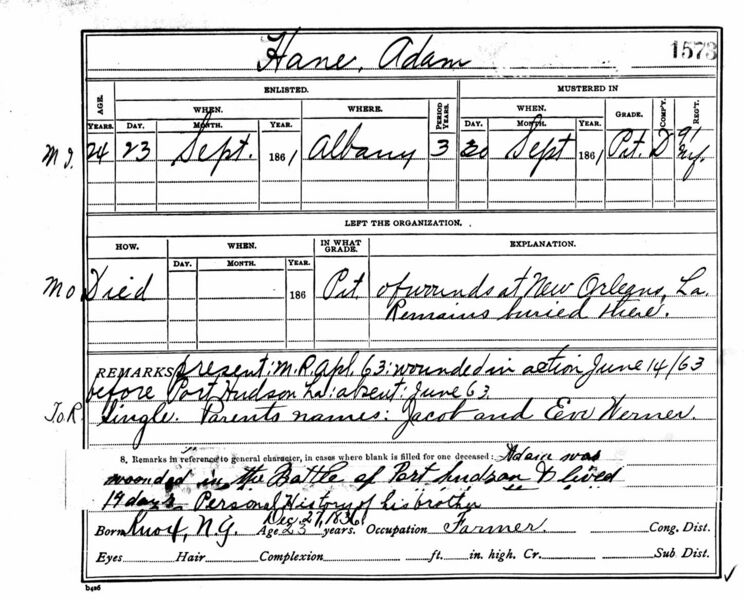 Hane, Adam
1573
AGE. ENLISTED. MUSTERED IN
WHEN. WHERE. PERIOD YEARS. WHEN. GRADE. COMP'Y. REG'T.
YEARS. DAY. MONTH. YEAR. DAY. MONTH. YEAR.
M I. 24 23 Sept. 1861 Albany 3 30 Sept 1861 Pvt. D 91 Ny.
LEFT THE ORGANIZATION.
HOW. WHEN. IN WHAT GRADE. EXPLANATION.
DAY. MONTH. YEAR.
M O Died 186 Pvt. of wounds at New Orleans, La.
Remains buried there.
REMARKS present: M.R. Apl. 63: wounded in action June 14/63
before Port Hudson La: absent: June 63.
To R. Single. Parents names: Jacob and Eve Werner.
8. Remarks in reference to general character, in cases where blank is filled for one deceased: Adam was
wounded in the Battle of Port Hudson & lived
19 days. Personal History of his brother
Dec. 27, 1836
Born Knox, N.Y. Age 23 years. Occupation Farmer. Cong. Dist.
Eyes Hair Complexion ft. in. high. Cr. Sub Dist.
b426